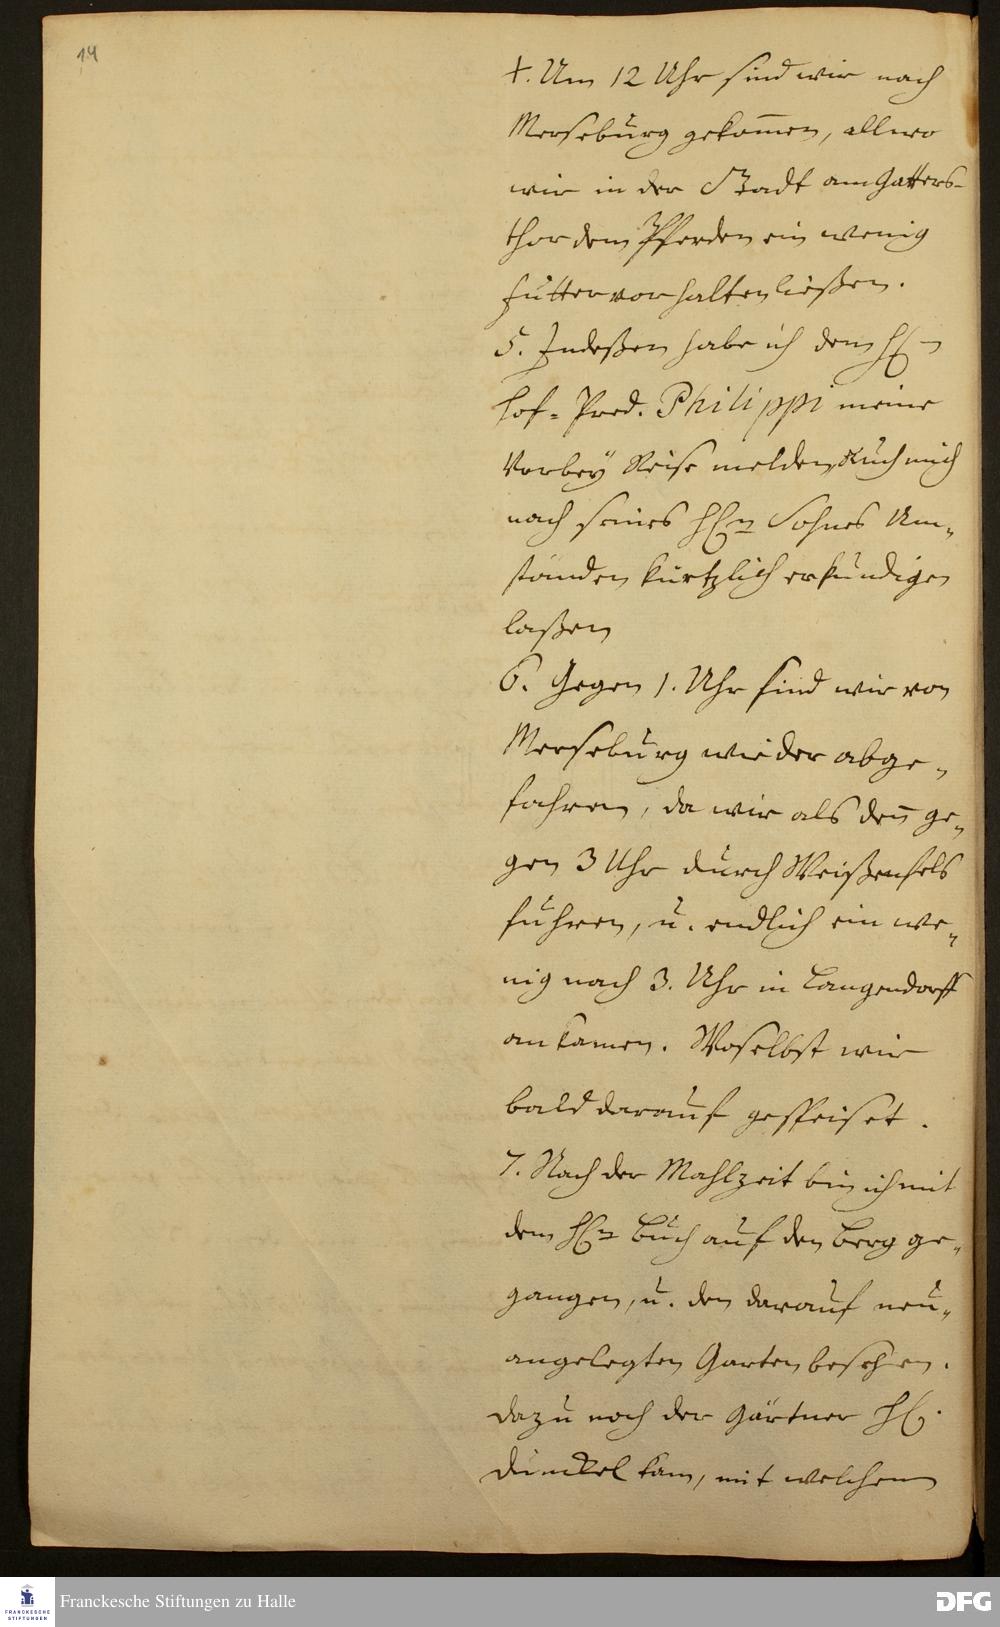 14
4. Um 12 Uhr sind wir nach
Merseburg gekom̅en, allwo
wir in der Stadt am Gatters-
thor dem Pferden ein wenig
Futter vorhalten ließen.
5. Indeßen habe ich dem HE-
Hof-Pred. Philippi meine
Vorbey Reise melden, auch mich
nach seines HEn Sohnes Um-
ständen kürtzlich erkundigen
laßen
6. Gegen 1. Uhr sind wir von
Merseburg wieder abge-
fahren, da wir als den̅ ge-
gen 3 Uhr durch Weißenfels
fuhren, u. endlich ein we-
nig nach 3. Uhr in Langendorff
ankamen. Woselbst wir
bald darauf gespeiset.
7. Nach der Mahlzeit bin ich mit
dem HEn Buch auf den Berg ge-
gangen, u. den darauf neu-
angelegten Garten besehen.
dazu noch der Gärtner HE.
Dunckel kam, mit welchem
FRANCKESCHE
STIFTUNGEN
Franckesche Stiftungen zu Halle
DFG